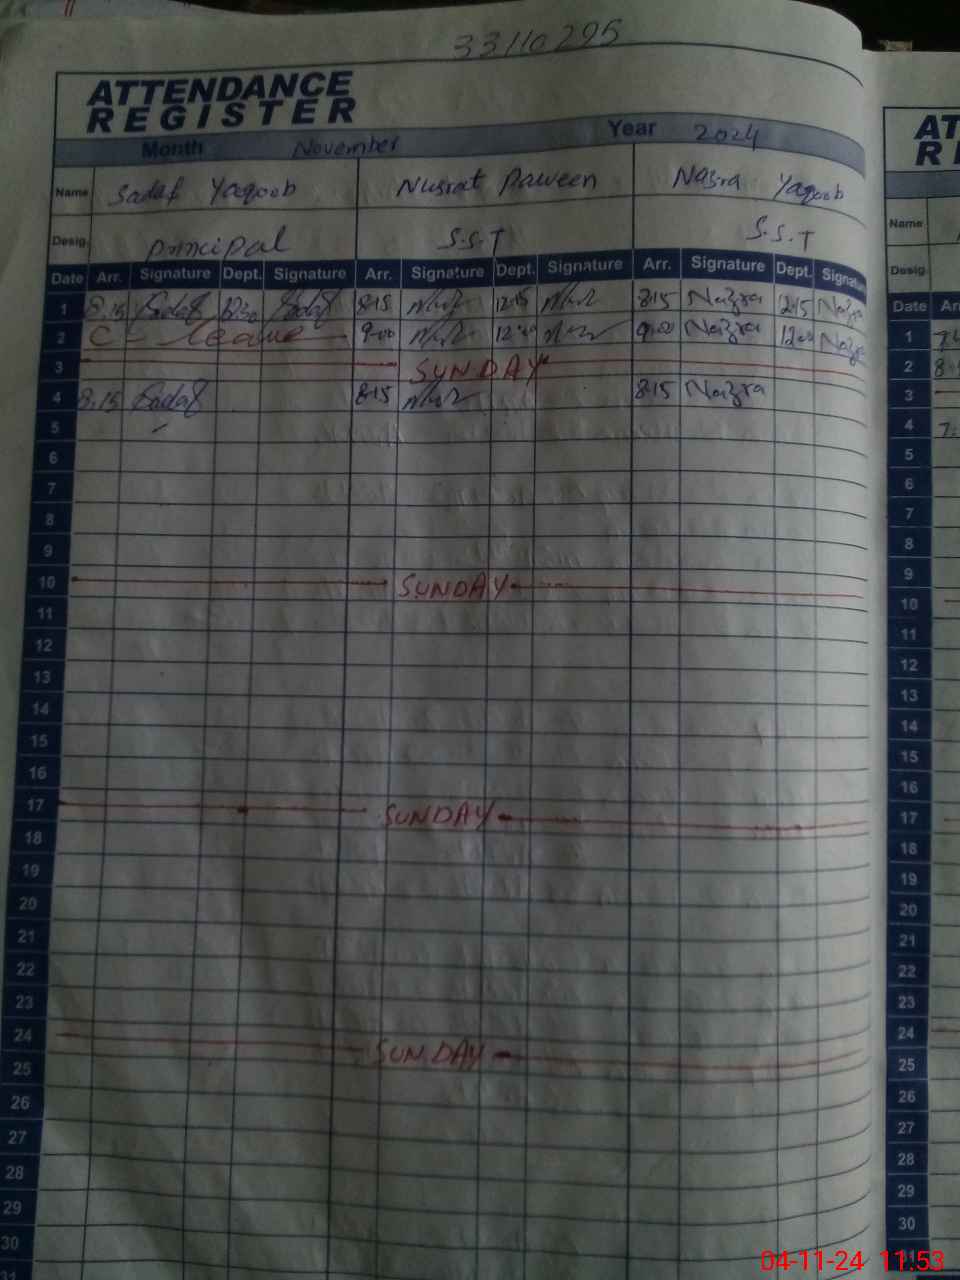 33110295
ATTENDANCE
REGISTER
Month November Year 2024
Name Sadaf Yaqoob Nusrat Parveen Nazra Yaqoob
Desig. Principal S.S.T S.S.T
Date Arr. Signature Dept. Signature Arr. Signature Dept. Signature Arr. Signature Dept. Signature
1 8.15 Sadaf 12.30 Sadaf 8:15 12:15 8:15 Nazra 12:15 Nazra
2 C - leave 9:00 9:00 Nazra 12:00 Nazra
3 SUNDAY
4 8:15 Sadaf 8:15 8:15 Nazra
5
6
7
8
9
10 SUNDAY
11
12
13
14
15
16
17 SUNDAY
18
19
20
21
22
23
24 SUNDAY
25
26
27
28
29
30
31
AT
RE
Name
Desig.
Date Arr
1
2
3
4
5
6
7
8
9
10
11
12
13
14
15
16
17
18
19
20
21
22
23
24
25
26
27
28
29
30
31
04-11-24 11:53